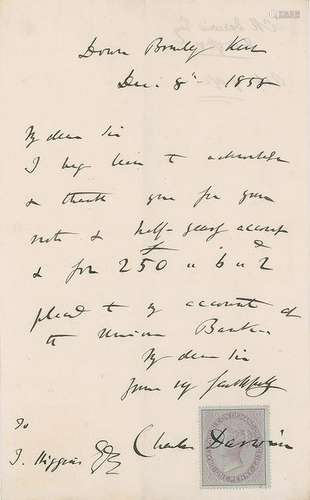 Down Bromley Kent
Dec. 8th 1858
My dear Sir
I beg leave to acknowledge
& thank you for your
note & half-yearly account
& for £250 " 6 " 2
placed to my account at
the Union Bank.
My dear Sir
Yours very faithfully
Charles Darwin
To
J. Higgins Esq